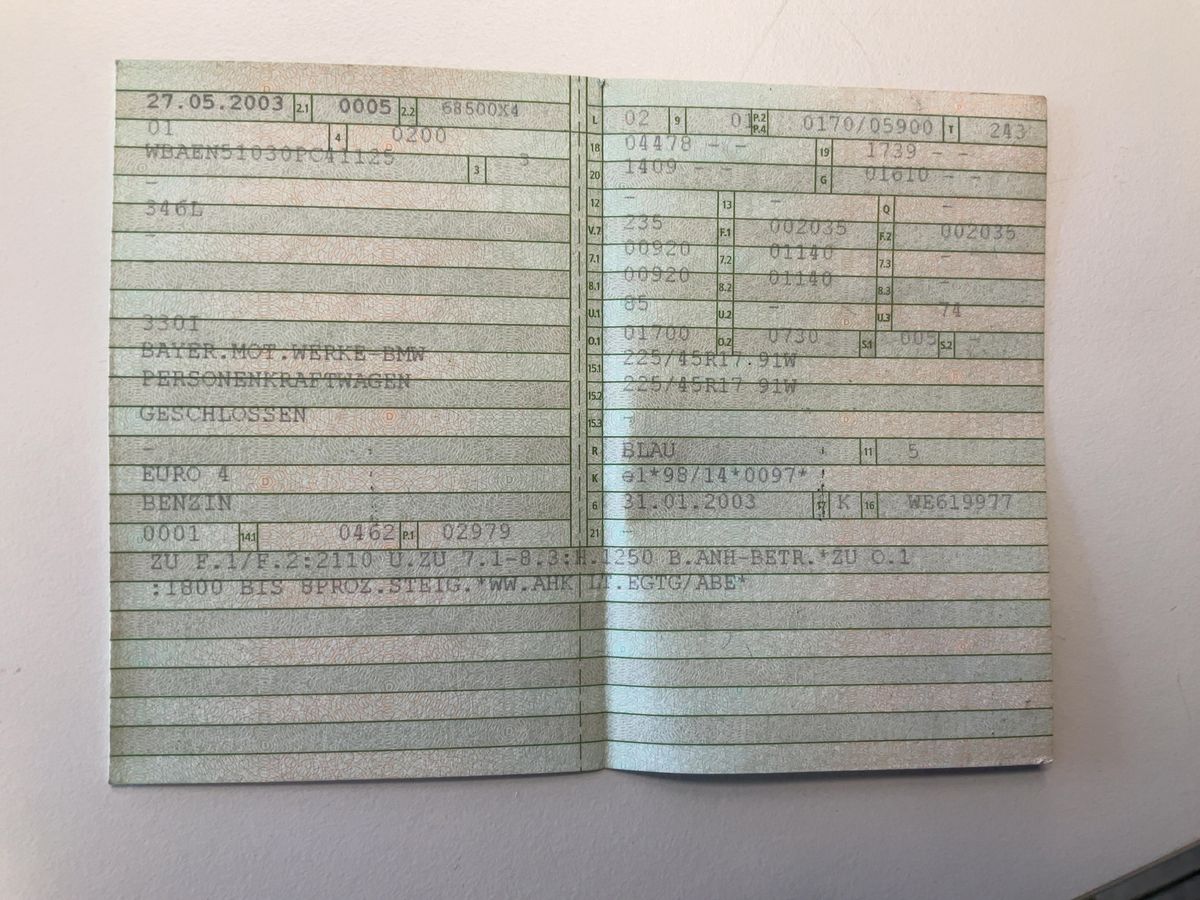 27.05.2003 2.1 0005 2.2 68500X4
01 4 0200
WBAEN51030PC41125 3 3
-
346L
-
330I
BAYER.MOT.WERKE-BMW
PERSONENKRAFTWAGEN
GESCHLOSSEN
-
EURO 4
BENZIN
0001 14.1 0462 P.1 02979
L 02 9 01 P.2 P.4 0170/05900 T 243
18 04478 - - 19 1739 - -
20 1409 - - G 01610 - -
12 - 13 - Q -
V.7 235 F.1 002035 F.2 002035
7.1 00920 7.2 01140 7.3 -
8.1 00920 8.2 01140 8.3 -
U.1 85 U.2 - U.3 74
O.1 01700 O.2 0730 S.1 005 S.2 -
15.1 225/45R17 91W
15.2 225/45R17 91W
15.3 -
R BLAU 11 5
K e1*98/14*0097*
6 31.01.2003 17 K 16 WE619977
21 -
ZU F.1/F.2:2110 U.ZU 7.1-8.3:H.1250 B.ANH-BETR.*ZU O.1
:1800 BIS 8PROZ.STEIG.*WW.AHK LT.EGTG/ABE*